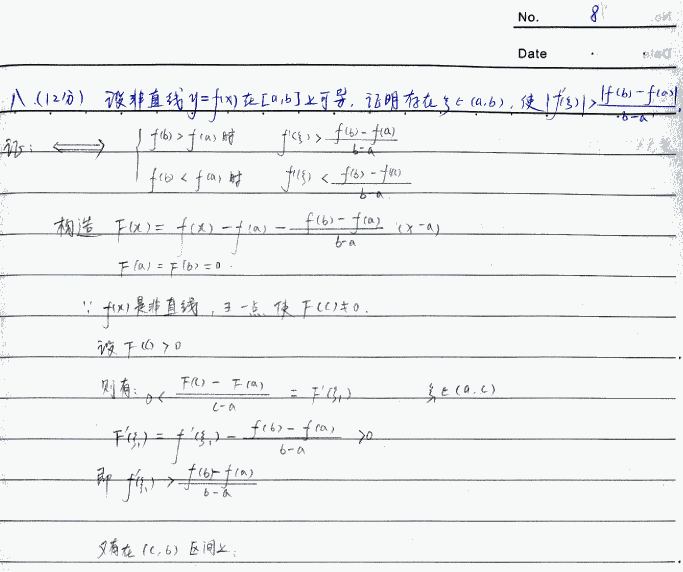 No. 8
Date
八. (12分) 设非直线 y=f(x) 在 [a,b] 上可导, 证明存在 ξ∈(a,b), 使 |f'(ξ)|> |f(b)-f(a)|/b-a
证: ⟺ { f(b)>f(a) 时 f'(ξ) > f(b)-f(a)/b-a
f(b)<f(a) 时 f'(ξ) < f(b)-f(a)/b-a
构造 F(x) = f(x) - f(a) - f(b)-f(a)/b-a (x-a)
F(a) = F(b) = 0.
∵ f(x) 是非直线, ∃一点 使 F(c)≠0.
设 F(c) > 0
则有: 0 < F(c) - F(a)/c-a = F'(ξ₁) ξ₁∈(a,c)
F'(ξ₁) = f'(ξ₁) - f(b)-f(a)/b-a >0
即 f'(ξ₁) > f(b)-f(a)/b-a
又有在 (c,b) 区间上: